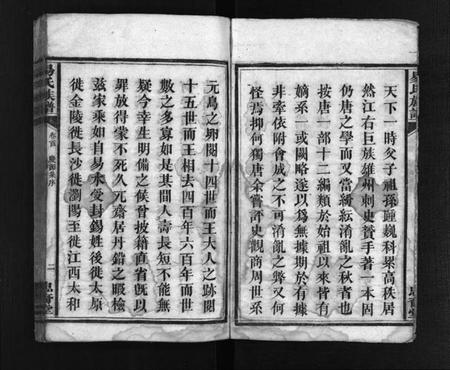 天下一時父子祖孫踵巍科累高秩居
然江右巨族雄州刺史贊手著一本因
仍唐之學而又當紛紜淆亂之秋者也
按唐一部十二編類於始祖以來皆有
嫡系一或闕略遂以爲無據期於有據
非牽依附會成之不可淆亂之弊又何
怪焉抑何獨唐余嘗評史觀商周世系
元鳥之卵閱十四世而王大人之跡閱
十五世而王相去四百年六百年而世
數之多寡如是其間人壽長短不能無
疑今幸生明備之候曾披籍直省既以
罪放得蒙不死入元齋居丹鉛之暇檢
茲家乘如自易水受封錫姓後徙太原
徙金陵徙長沙徙瀏陽至徙江西太和
易氏族譜
卷首
二